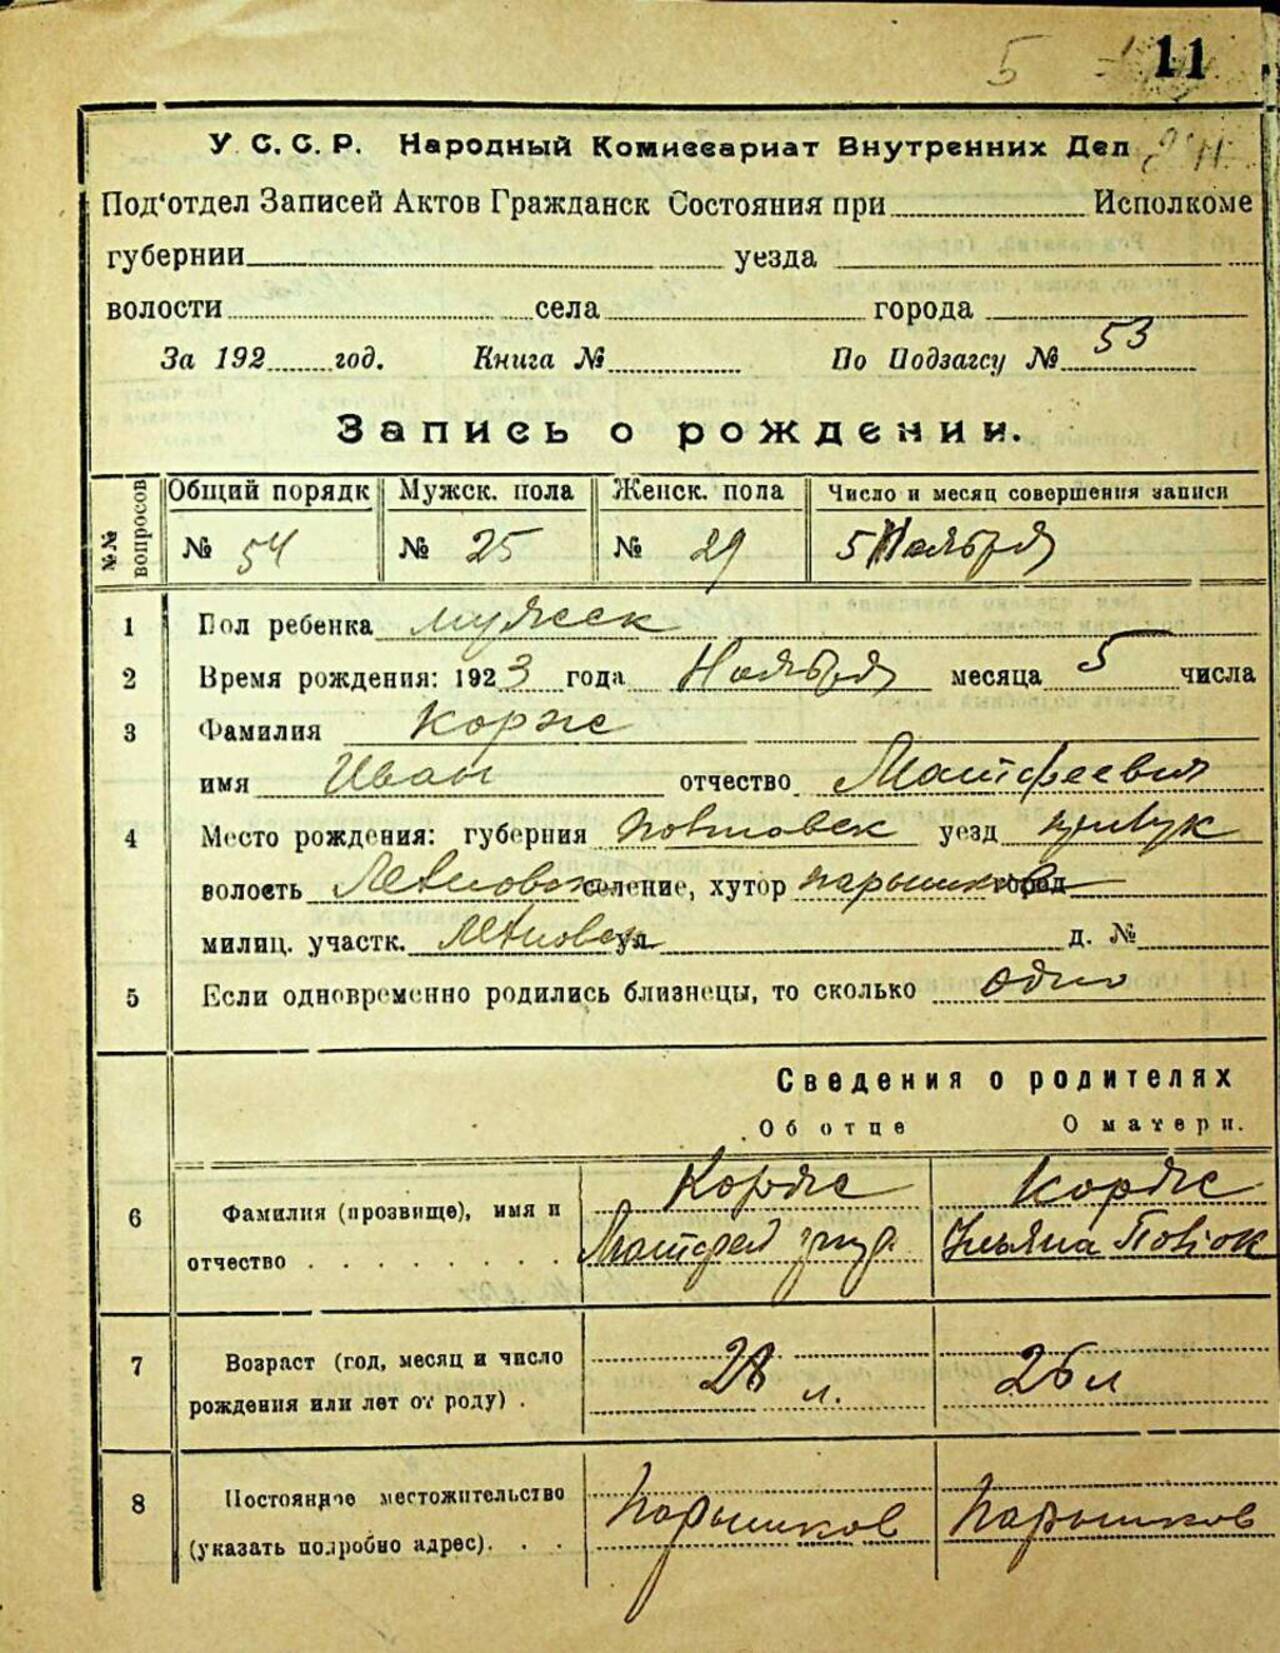 5 11
У.С.С.Р. Народный Комиссариат Внутренних Дел
Под‘отдел Записей Актов Гражданск Состояния при Исполкоме
губернии уезда
волости села города
За 192 год. Книга № По Подзагсу № 53
Запись о рождении.
№№ вопросов Общий порядк Мужск. пола Женск. пола Число и месяц совершения записи
№ 54 № 25 № 29 5 Ноября
1 Пол ребенка мужеск
2 Время рождения: 1923 года Ноября месяца 5 числа
3 Фамилия Корж
имя Иван отчество Матфеевич
4 Место рождения: губерния Полтовск уезд прилук
волость селение, хутор парышков город
милиц. участк. ул. д. №
5 Если одновременно родились близнецы, то сколько одно
Сведения о родителях
Об отце О матери.
6 Фамилия (прозвище), имя и Корж Корж
отчество Матфей Ульяна
7 Возраст (год, месяц и число
рождения или лет от роду) . 28 л. 26 л
8 Постоянное местожительство
(указать подробно адрес). Парышков Парышков